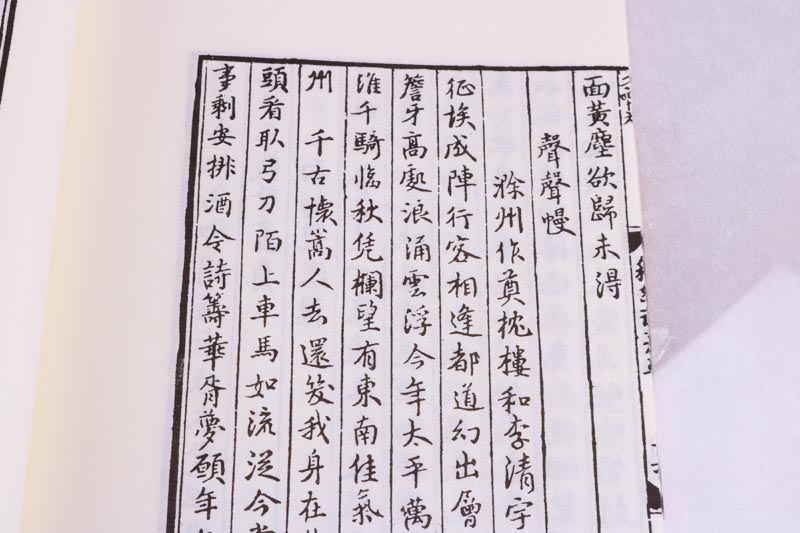 面黃塵欲歸未得
聲聲慢
滁州作奠枕樓和李清宇
征埃成陣行客相逢都道幻出層
簷牙高處浪涌雲浮今年太平萬
淮千騎臨秋凭欄望有東南佳氣
州 千古懷嵩人去還笑我身在
頭看取弓刀陌上車馬如流從今
事剩安排酒令詩籌華胥夢願年